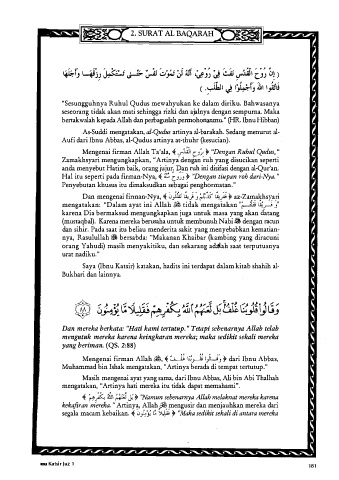 2. SURAT AL BAQARAH
( إِنَّ رُوْحَ الْقُدُسِ نَفَثَ فِيْ رُوْعِيْ، أَنَّهُ لَنْ تَمُوْتَ نَفْسٌ حَتَّى تَسْتَكْمِلَ رِزْقَهَا وَأَجَلَهَا
فَاتَّقُوا اللهَ وَأَجْمِلُوْا فِي الطَّلَبِ. )
"Sesungguhnya Ruhul Qudus mewahyukan ke dalam diriku. Bahwasanya
seseorang tidak akan mati sehingga rizki dan ajalnya dengan sempurna. Maka
bertakwalah kepada Allah dan perbaguslah permohonanmu." (HR. Ibnu Hibban)
As-Suddi mengatakan, al-Qudus artinya al-barakah. Sedang menurut al-
Aufi dari Ibnu Abbas, al-Qudus artinya at-thuhr (kesucian).
Mengenai firman Allah Ta'ala, ﴾ رُوْحُ الْقُدُسِ ﴿ "Dengan Ruhul Qudus,"
Zamakhsyari mengungkapkan, "Artinya dengan ruh yang disucikan seperti
anda menyebut Hatim baik, orang jujur. Dan ruh ini disifati dengan al-Qur'an.
Hal itu seperti pada firman-Nya, ﴾ وَرُوْحٌ مِنْهُ ﴿ "Dengan tiupan ruh dari-Nya."
Penyebutan khusus itu dimaksudkan sebagai penghormatan."
Dan mengenai firman-Nya, ﴾ فَفَرِيْقًا كَذَّبْتُمْ وَفَرِيْقًا تَقْتُلُوْنَ ﴿ az-Zamakhsyari
mengatakan: "Dalam ayat ini Allah tidak mengatakan "وَفَرِيْقًا قَتَلْتُمْ"
karena Dia bermaksud mengungkapkan juga untuk masa yang akan datang
(mustaqbal). Karena mereka berusaha untuk membunuh Nabi ﷺ dengan racun
dan sihir. Pada saat itu beliau menderita sakit yang menyebabkan kematian-
nya, Rasulullah ﷺ bersabda: "Makanan Khaibar (kambing yang diracuni
orang Yahudi) masih menyakitiku, dan sekarang adalah saat terputusnya
urat nadiku."
Saya (Ibnu Katsir) katakan, hadits ini terdapat dalam kitab shahih al-
Bukhari dan lainnya.
وَقَالُوا قُلُوبُنَا غُلْفٌ بَل لَّعَنَهُمُ اللَّهُ بِكُفْرِهِمْ فَقَلِيلًا مَّا يُؤْمِنُونَ ٨٨
Dan mereka berkata: "Hati kami tertutup." Tetapi sebenarnya Allah telah
mengutuk mereka karena keingkaran mereka; maka sedikit sekali mereka
yang beriman. (QS. 2:88)
Mengenai firman Allah ﴾ وَقَالُوا قُلُوْبُنَا غُلْفٌ ﴿ dari Ibnu Abbas,
Muhammad bin Ishak mengatakan, "Artinya berada di tempat tertutup."
Masih mengenai ayat yang sama, dari Ibnu Abbas, Ali bin Abi Thalhah
mengatakan, "Artinya hati mereka itu tidak dapat memahami".
﴾ بَلْ لَعَنَهُمُ اللهُ بِكُفْرِهِمْ ﴿ "Namun sebenarnya Allah melaknat mereka karena
kekafiran mereka." Artinya, Allah mengusir dan menjauhkan mereka dari
segala macam kebaikan. ﴾ فَقَلِيْلًا مَّا يُؤْمِنُوْنَ ﴿ "Maka sedikit sekali di antara mereka
Katsir Juz 1
181